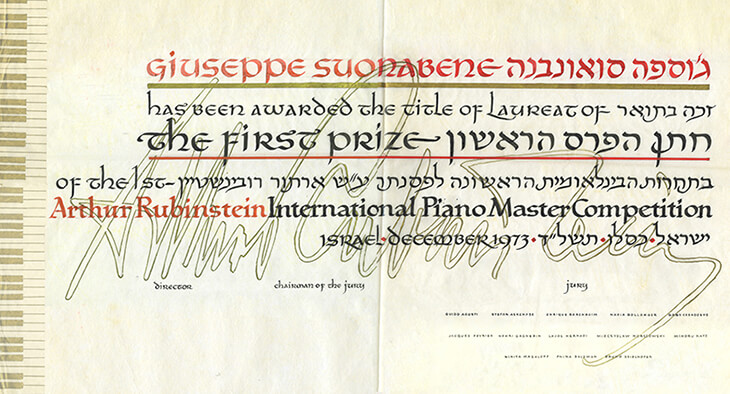 Giuseppe Suonabene ג׳וספה סואונבנה
has been awarded the title of Laureat of זכה בתואר
the first prize חתן הפרס הראשון
of the 1st- בתחרות הבינלאומית הראשונה לפסנתר ע״ש ארתור רובינשטיין
Arthur Rubinstein International Piano Master Competition
Israel·December 1973 · ישראל·כסלו·תשל״ד
director chairman of the jury jury
GUIDO AGOSTI STEFAN ASKENASE ENRIQUE BARENBOIM NADIA BOULANGER
JACQUES FEVRIER HENRI GAGNEBIN LAJOS HERNADI MIECZYSLAW HORSZOWSKI MINDRU KATZ
NIKITA MAGALOFF PNINA SALZMAN BRUNO SEIDLHOFER